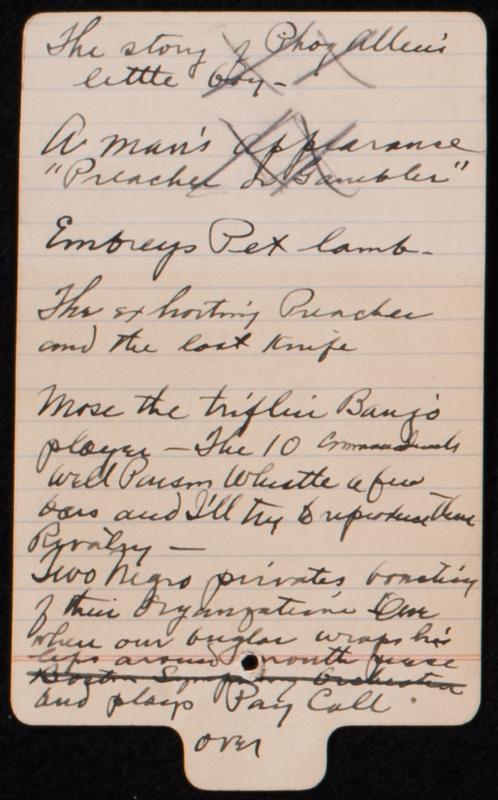 The story of Phog Allen's
little boy -
A man's appearance
"Preacher or Gambler"
Embreys Pet lamb -
The exhorting Preacher
and the lost Knife
Mose the triflin Banjo
player - The 10 Commandments
Well Parson Whistle a few
bars and I'll try to reproduce them
Rivalry -
Two Negro privates boasting
of their Organization One
when our buglar wraps his
lips around mouth piece
Boston Symphony Orchestra
and plays Pay Call.
over